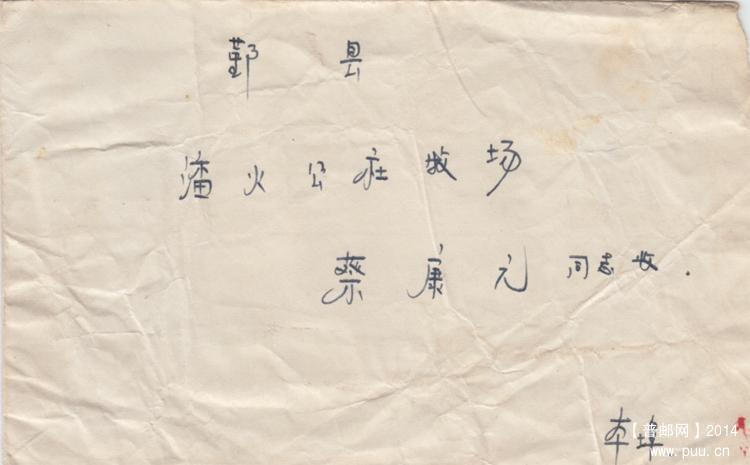 鄞县
潘火公社牧场
蔡康元 同志收.
本埠
【普邮网】2014
www.puu.cn